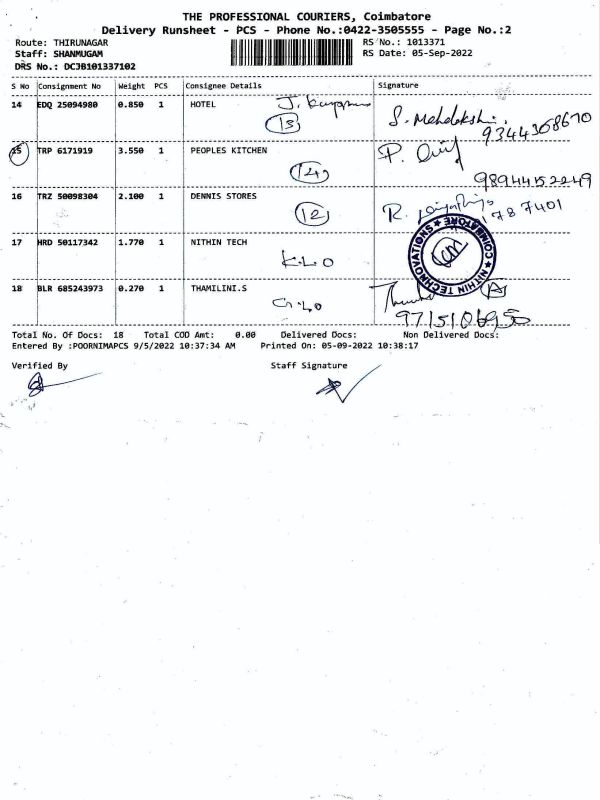 THE PROFESSIONAL COURIERS, Coimbatore
Delivery Runsheet - PCS - Phone No.:0422-3505555 - Page No.:2
Route: THIRUNAGAR
RS No.: 1013371
Staff: SHANMUGAM
RS Date: 05-Sep-2022
DRS No.: DCJB101337102
S No Consignment No Weight PCS Consignee Details Signature
14 EDQ 25094980 0.850 1 HOTEL
13
9344308670
15 TRP 6171919 3.550 1 PEOPLES KITCHEN P.
12
98944152249
16 TRZ 50098304 2.100 1 DENNIS STORES R.
12
7401
17 HRD 50117342 1.770 1 NITHIN TECH
NITHIN TECHNOVATIONS ★ COIMBATORE ★
18 BLR 685243973 0.270 1 THAMILINI.S
Total No. Of Docs: 18 Total COD Amt: 0.00 Delivered Docs: Non Delivered Docs:
Entered By :POORNIMAPCS 9/5/2022 10:37:34 AM Printed On: 05-09-2022 10:38:17
Verified By Staff Signature